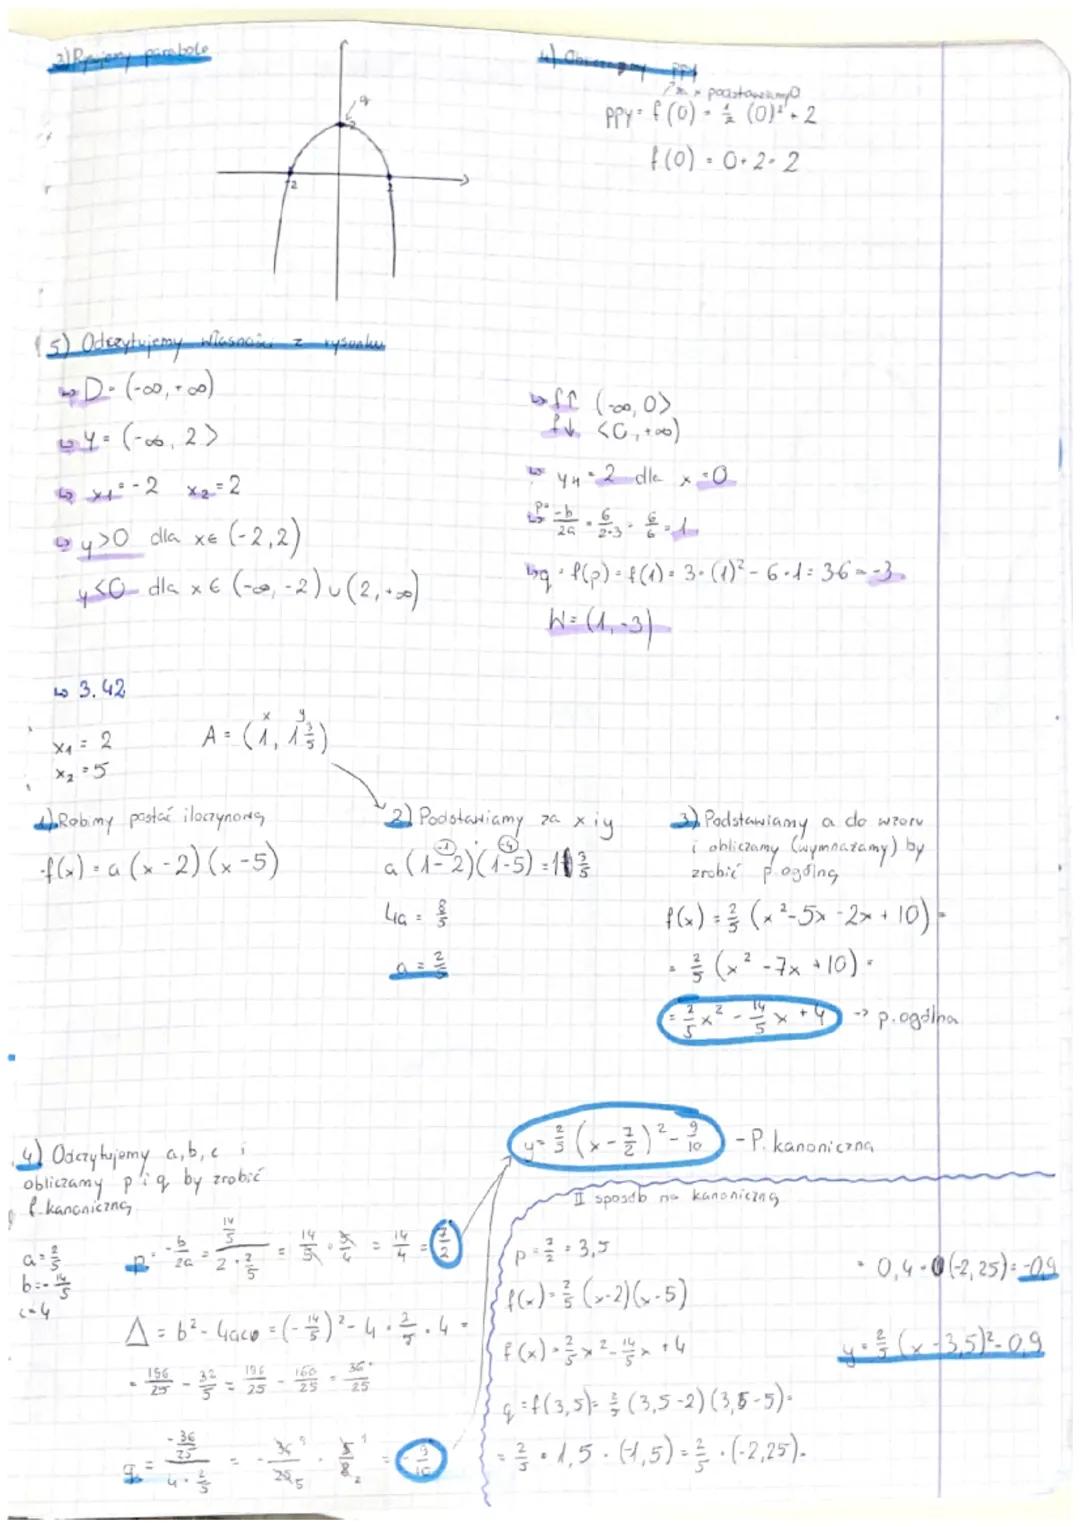 3) Rysujemy parabolę
q
2
-2
2
4) Obliczamy PPY
za x podstawiamy 0
PPY = f(0) = ½ (0)² + 2
f(0) = 0 + 2 = 2
5) Odczytujemy własności z rysunku
↳ D = (-∞, +∞)
↳ Y = (-∞, 2>
↳ x₁ = -2 x₂ = 2
↳ y>0 dla x∈ (-2,2)
y<0 dla x ∈ (-∞, -2) ∪ (2, +∞)
↳ f↑ (-∞, 0>
f↓ <0, +∞)
↳ y₄ = 2 dla x = 0
↳ p = -b/2a = 6/2·3 = 6/6 = 1
↳ q = f(p) = f(1) = 3·(1)² - 6·1 = 3-6 = -3
W = (1, -3)
↳ 3.42
x₁ = 2
x₂ = 5
x y
A = (1, 1 3/5)
1) Robimy postać iloczynową
f(x) = a (x-2)(x-5)
2) Podstawiamy za x i y
-1 -4
a (1-2)(1-5) = 1 3/5
4a = 8/5
a = 2/5
3) Podstawiamy a do wzoru
i obliczamy (wymnażamy) by
zrobić p.ogólną
f(x) = 2/5 (x²-5x-2x+10) =
= 2/5 (x²-7x+10) =
= 2/5 x² - 14/5 x + 4 → p.ogólna
4) Odczytujemy a, b, c i
obliczamy p i q by zrobić
f. kanoniczną
a = 2/5
b = -14/5
c = 4
p = -b/2a = 14/5 / 2·2/5 = 14/5 · 5/4 = 14/4 = 7/2
Δ = b² - 4ac = (-14/5)² - 4 · 2/5 · 4 =
= 196/25 - 32/5 = 196/25 - 160/25 = 36/25
q = -36/25 / 4·2/5 = -36⁹/25₅ · 5¹/8₂ = -9/10
y = 2/5 (x - 7/2)² - 9/10 - P. kanoniczna
II sposób na kanoniczną
p = 7/2 = 3,5
f(x) = 2/5 (x-2)(x-5)
f(x) = 2/5 x² - 14/5 x + 4
q = f(3,5) = 2/5 (3,5-2)(3,5-5) =
= 2/5 · 1,5 · (-1,5) = 2/5 · (-2,25) =
= 0,4 · (-2,25) = -0,9
y = 2/5 (x-3,5)² - 0,9